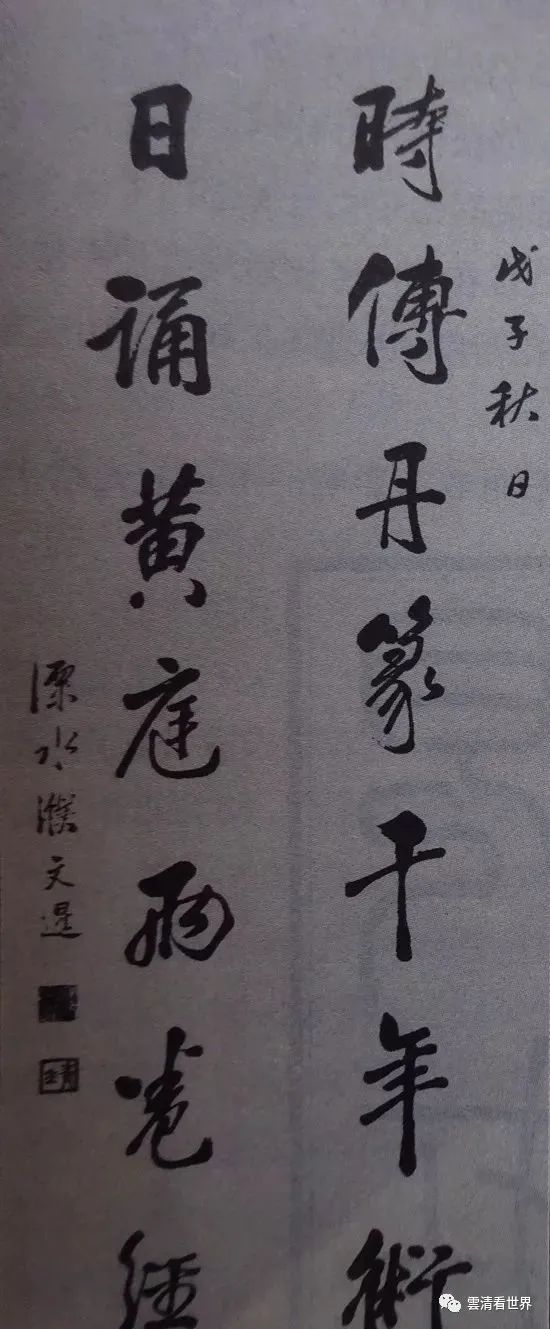 戊子秋日
時傳丹篆千年術
日誦黃庭兩卷經
溧水濮文暹
雲清看世界